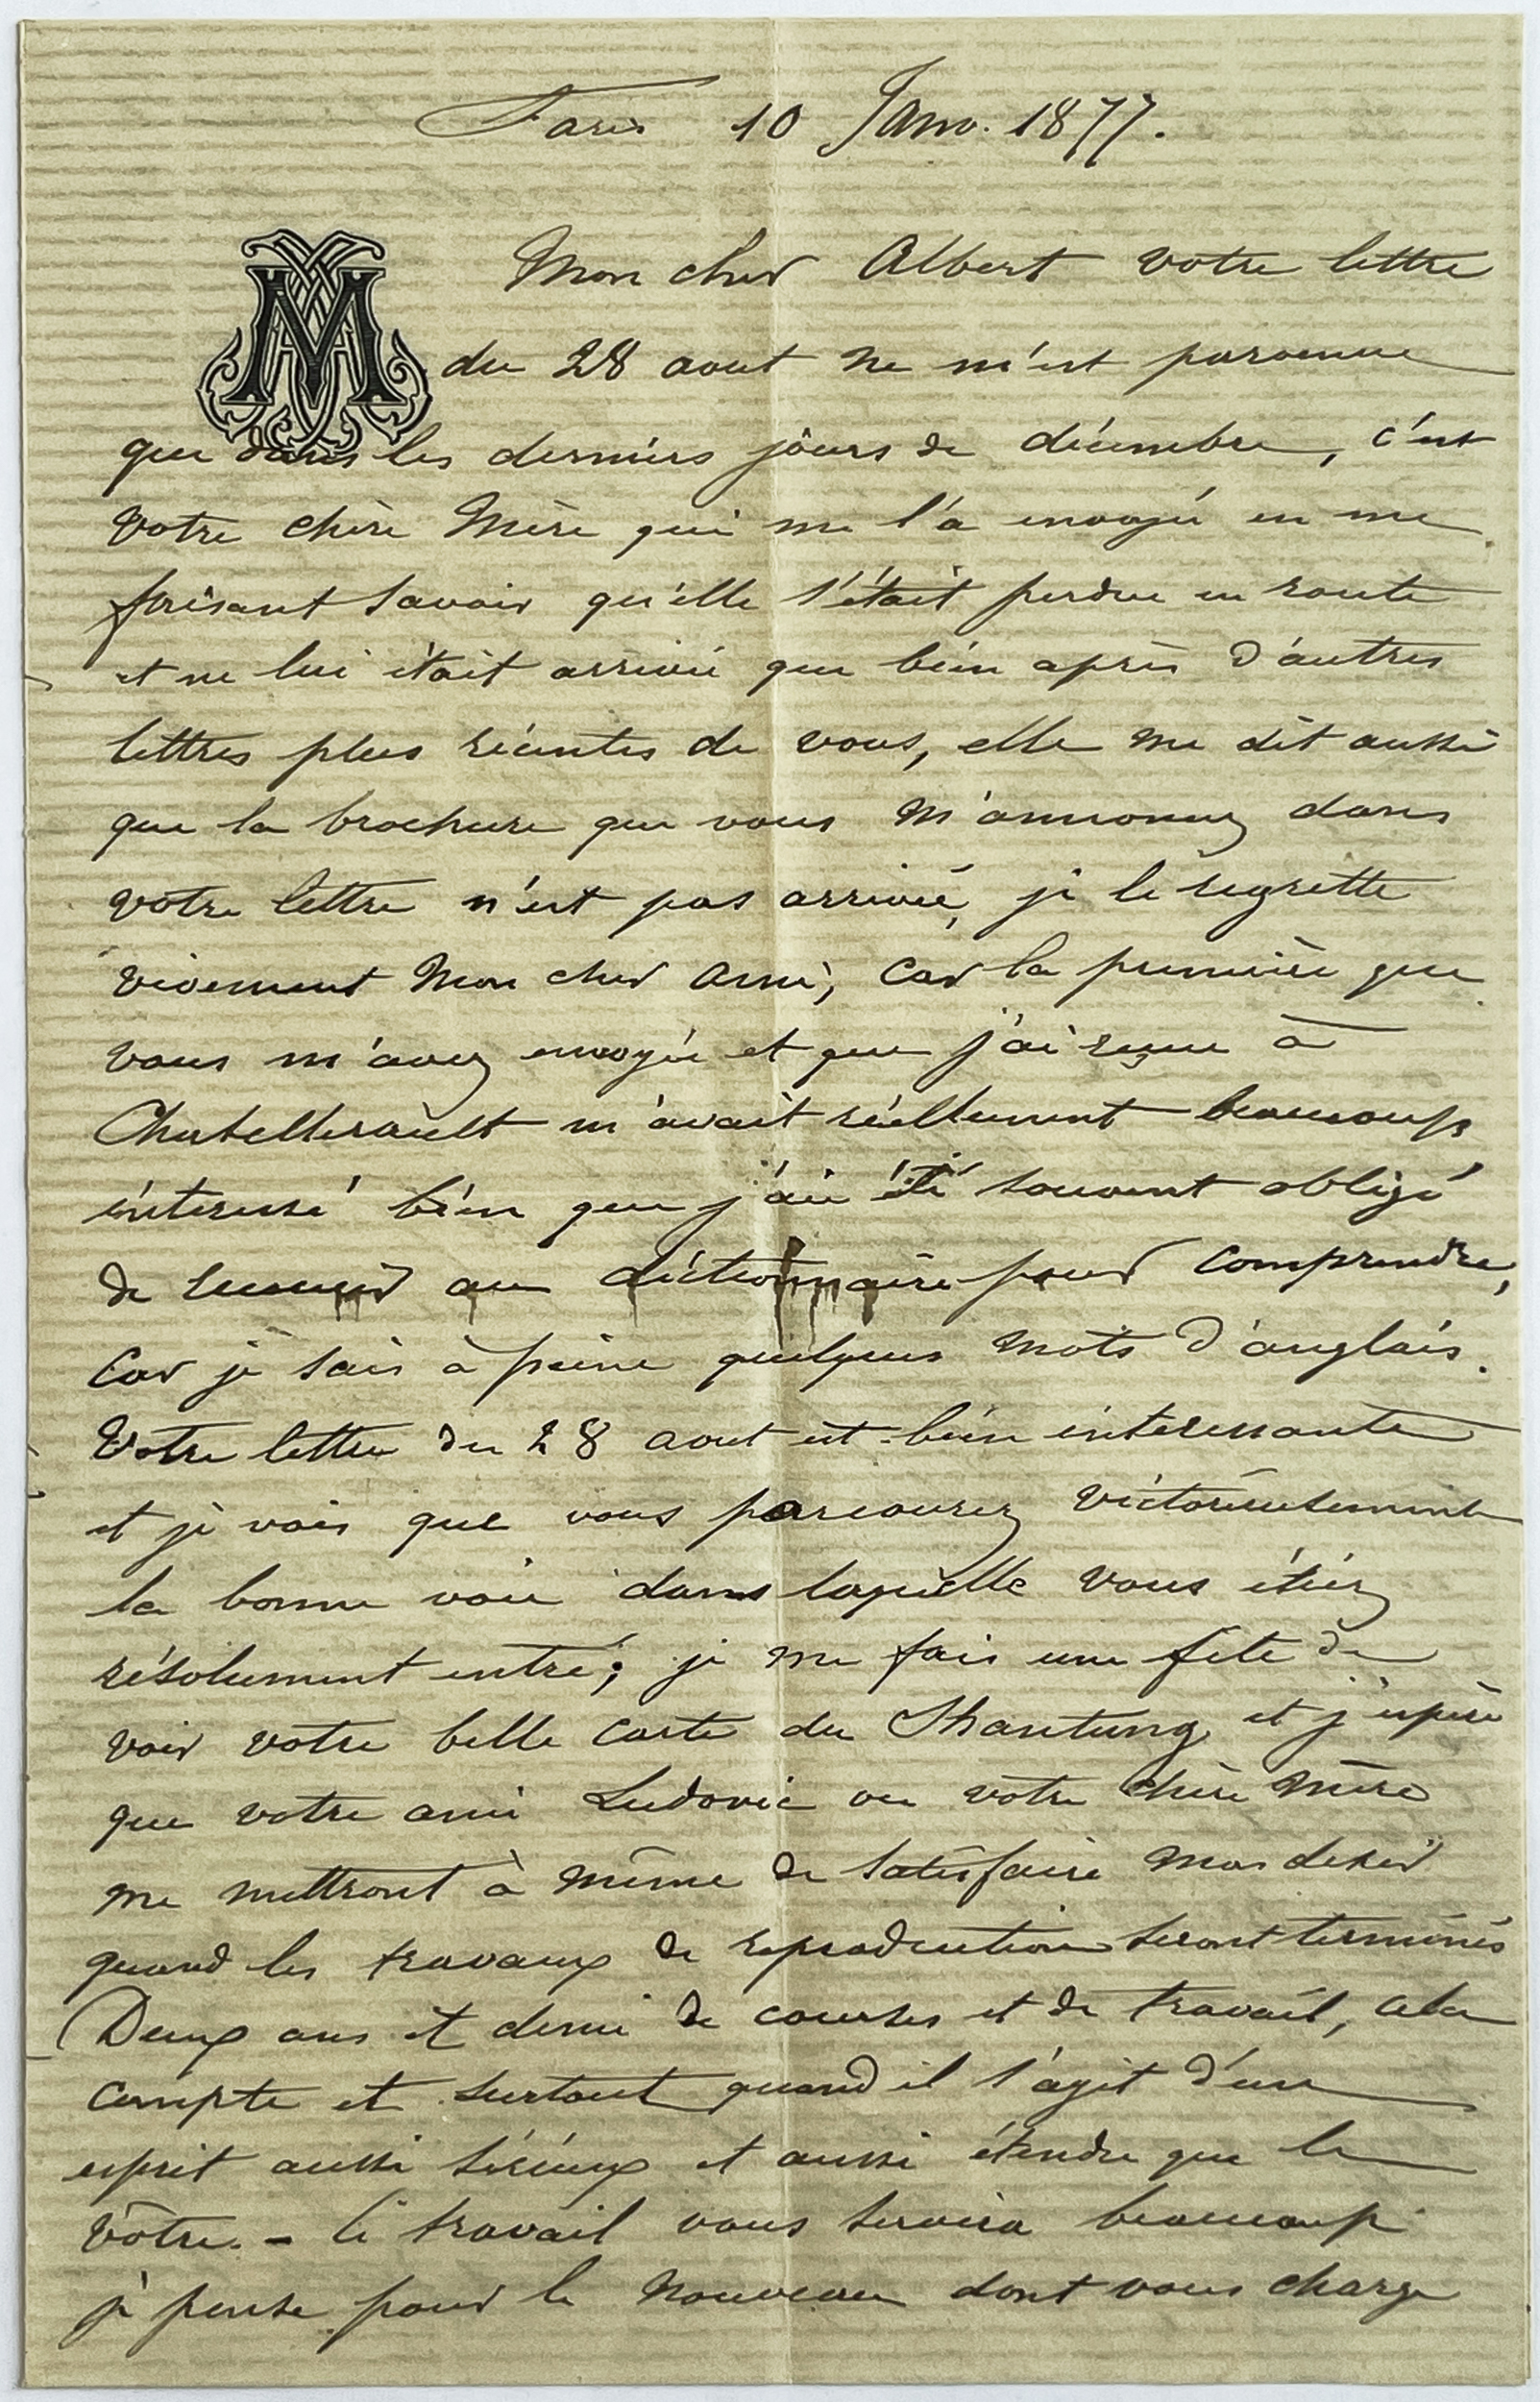 Paris 10 Janv. 1877.
Mon cher Albert votre lettre
du 28 aout ne m'est parvenue
que dans les derniers jours de décembre, c'est
votre chère Mère qui me l'a envoyée en me
faisant savoir qu'elle s'était perdue en route
et ne lui était arrivée que bien après d'autres
lettres plus récentes de vous, elle me dit aussi
que la brochure que vous m'annoncez dans
votre lettre n'est pas arrivée, je le regrette
vivement Mon cher Ami, Car la première que
vous m'avez envoyée et que j'ai reçue à
Chatellerault m'avait réellement beaucoup
interessé bien que j'aie été souvent obligé
de recourir au dictionnaire pour comprendre,
Car je sais à peine quelques mots d'anglais.
Votre lettre du 28 aout est bien interessante
et je vois que vous parcourez victorieusement
la bonne voie dans laquelle vous étiez
résolument entré; je me fais une fête de
voir votre belle Carte du Shantung et j'espère
que votre ami Ludovic ou votre chère Mère
me mettront à même de satisfaire mon desir
quand les travaux de reproduction seront terminés
Deux ans et demi de courses et de travail, cela
compte et surtout quand il s'agit d'un
esprit aussi sérieux et aussi étendu que le
vôtre. - Ce travail vous servira beaucoup
je pense pour le nouveau dont vous charge